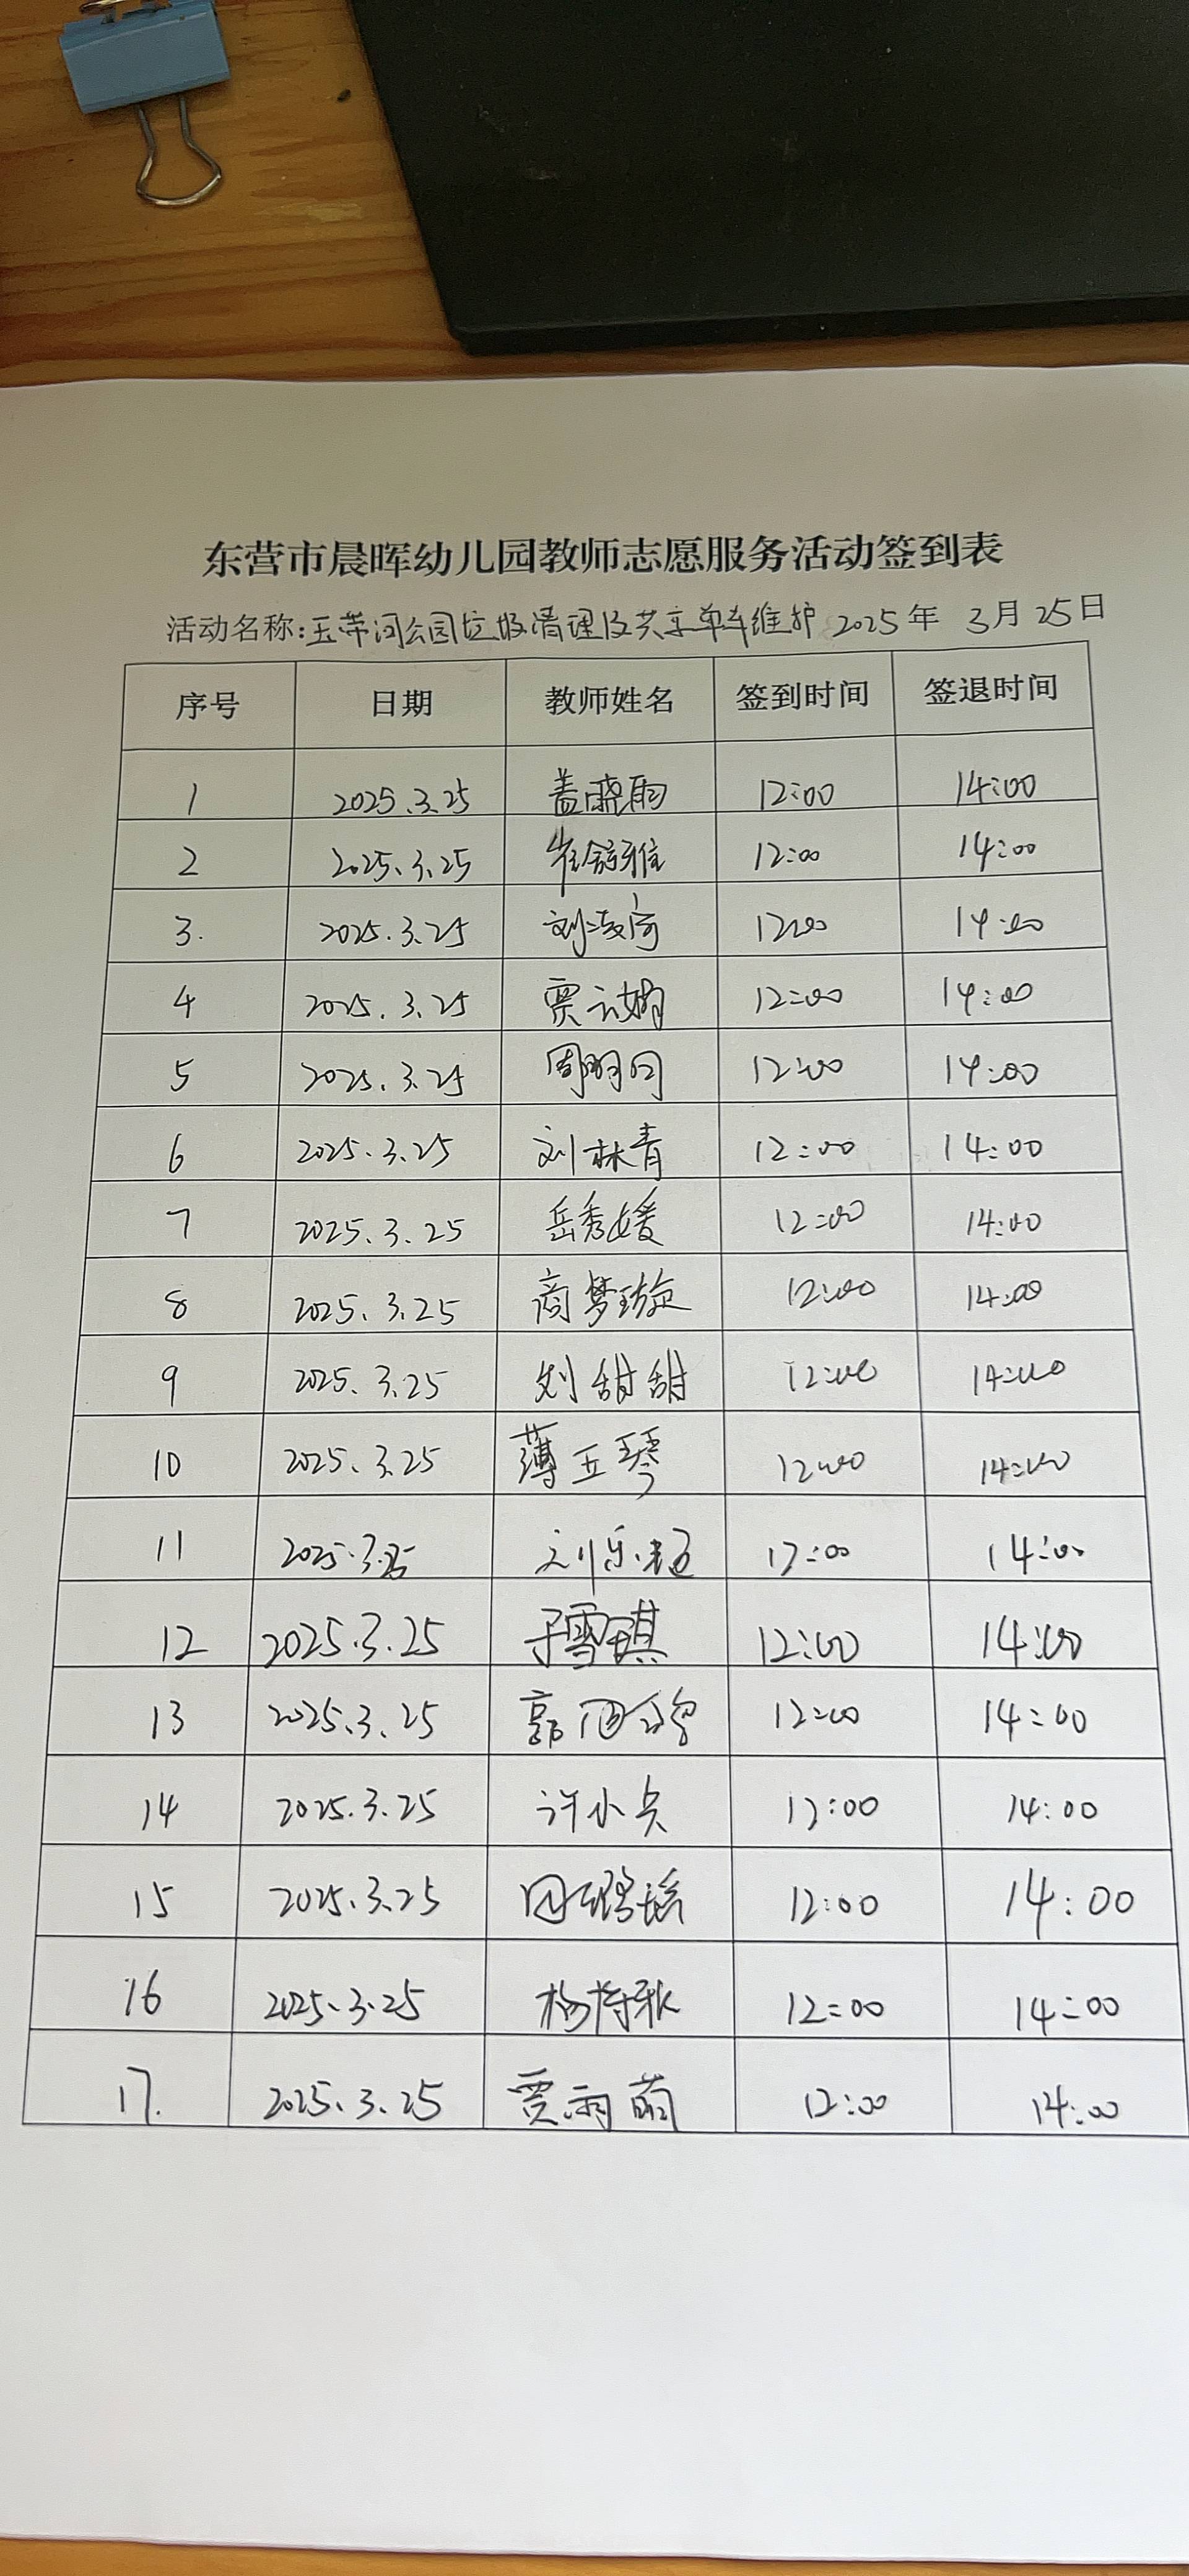 东营市晨晖幼儿园教师志愿服务活动签到表
活动名称:玉带河公园垃圾清理及共享单车维护 2025年 3月25日
序号 日期 教师姓名 签到时间 签退时间
1 2025.3.25 盖晓雨 12:00 14:00
2 2025.3.25 崔舒雅 12:00 14:00
3. 2025.3.25 刘凌宇 12:00 14:00
4 2025.3.25 贾云娟 12:00 14:00
5 2025.3.25 周明月 12:00 14:00
6 2025.3.25 刘林青 12:00 14:00
7 2025.3.25 岳秀媛 12:00 14:00
8 2025.3.25 商梦璇 12:00 14:00
9 2025.3.25 刘甜甜 12:00 14:00
10 2025.3.25 薄玉琴 12:00 14:00
11 2025.3.25 12:00 14:00
12 2025.3.25 于雪琪 12:00 14:00
13 2025.3.25 12:00 14:00
14 2025.3.25 许小兵 12:00 14:00
15 2025.3.25 12:00 14:00
16 2025.3.25 12:00 14:00
17. 2025.3.25 贾雨萌 12:00 14:00